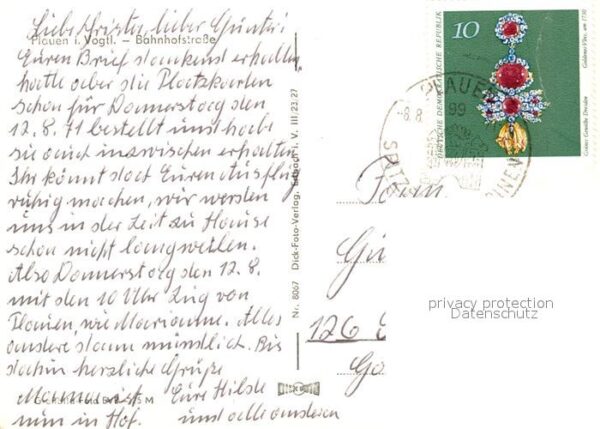 Liebe Christa, lieber Günter!
Plauen i. Vogtl. – Bahnhofstraße
Euren Brief dankend erhalten,
hatte aber die Platzkarten
schon für Donnerstag den
12.8.71 bestellt und habe
sie auch inzwischen erhalten.
Ihr könnt doch Euren Ausflug
ruhig machen, wir werden
uns in der Zeit zu Hause
schon nicht langweilen.
Also Donnerstag den 12.8.
mit den 10 Uhr Zug von
Plauen, wie Marianne. Alles
andere dann mündlich. Bis
dahin herzliche Grüße
Eure Hilde
nun in Hof. und alle anderen
Nr. 8067 Dick-Foto-Verlag, Erlbach i. V. III/23/27
10
DEUTSCHE DEMOKRATISCHE REPUBLIK
Goldenes Vlies, um 1730
Grünes Gewölbe Dresden
PLAUEN
-8.8.
99
SPITZEN
Fam.
Gü
126
privacy protection
Datenschutz